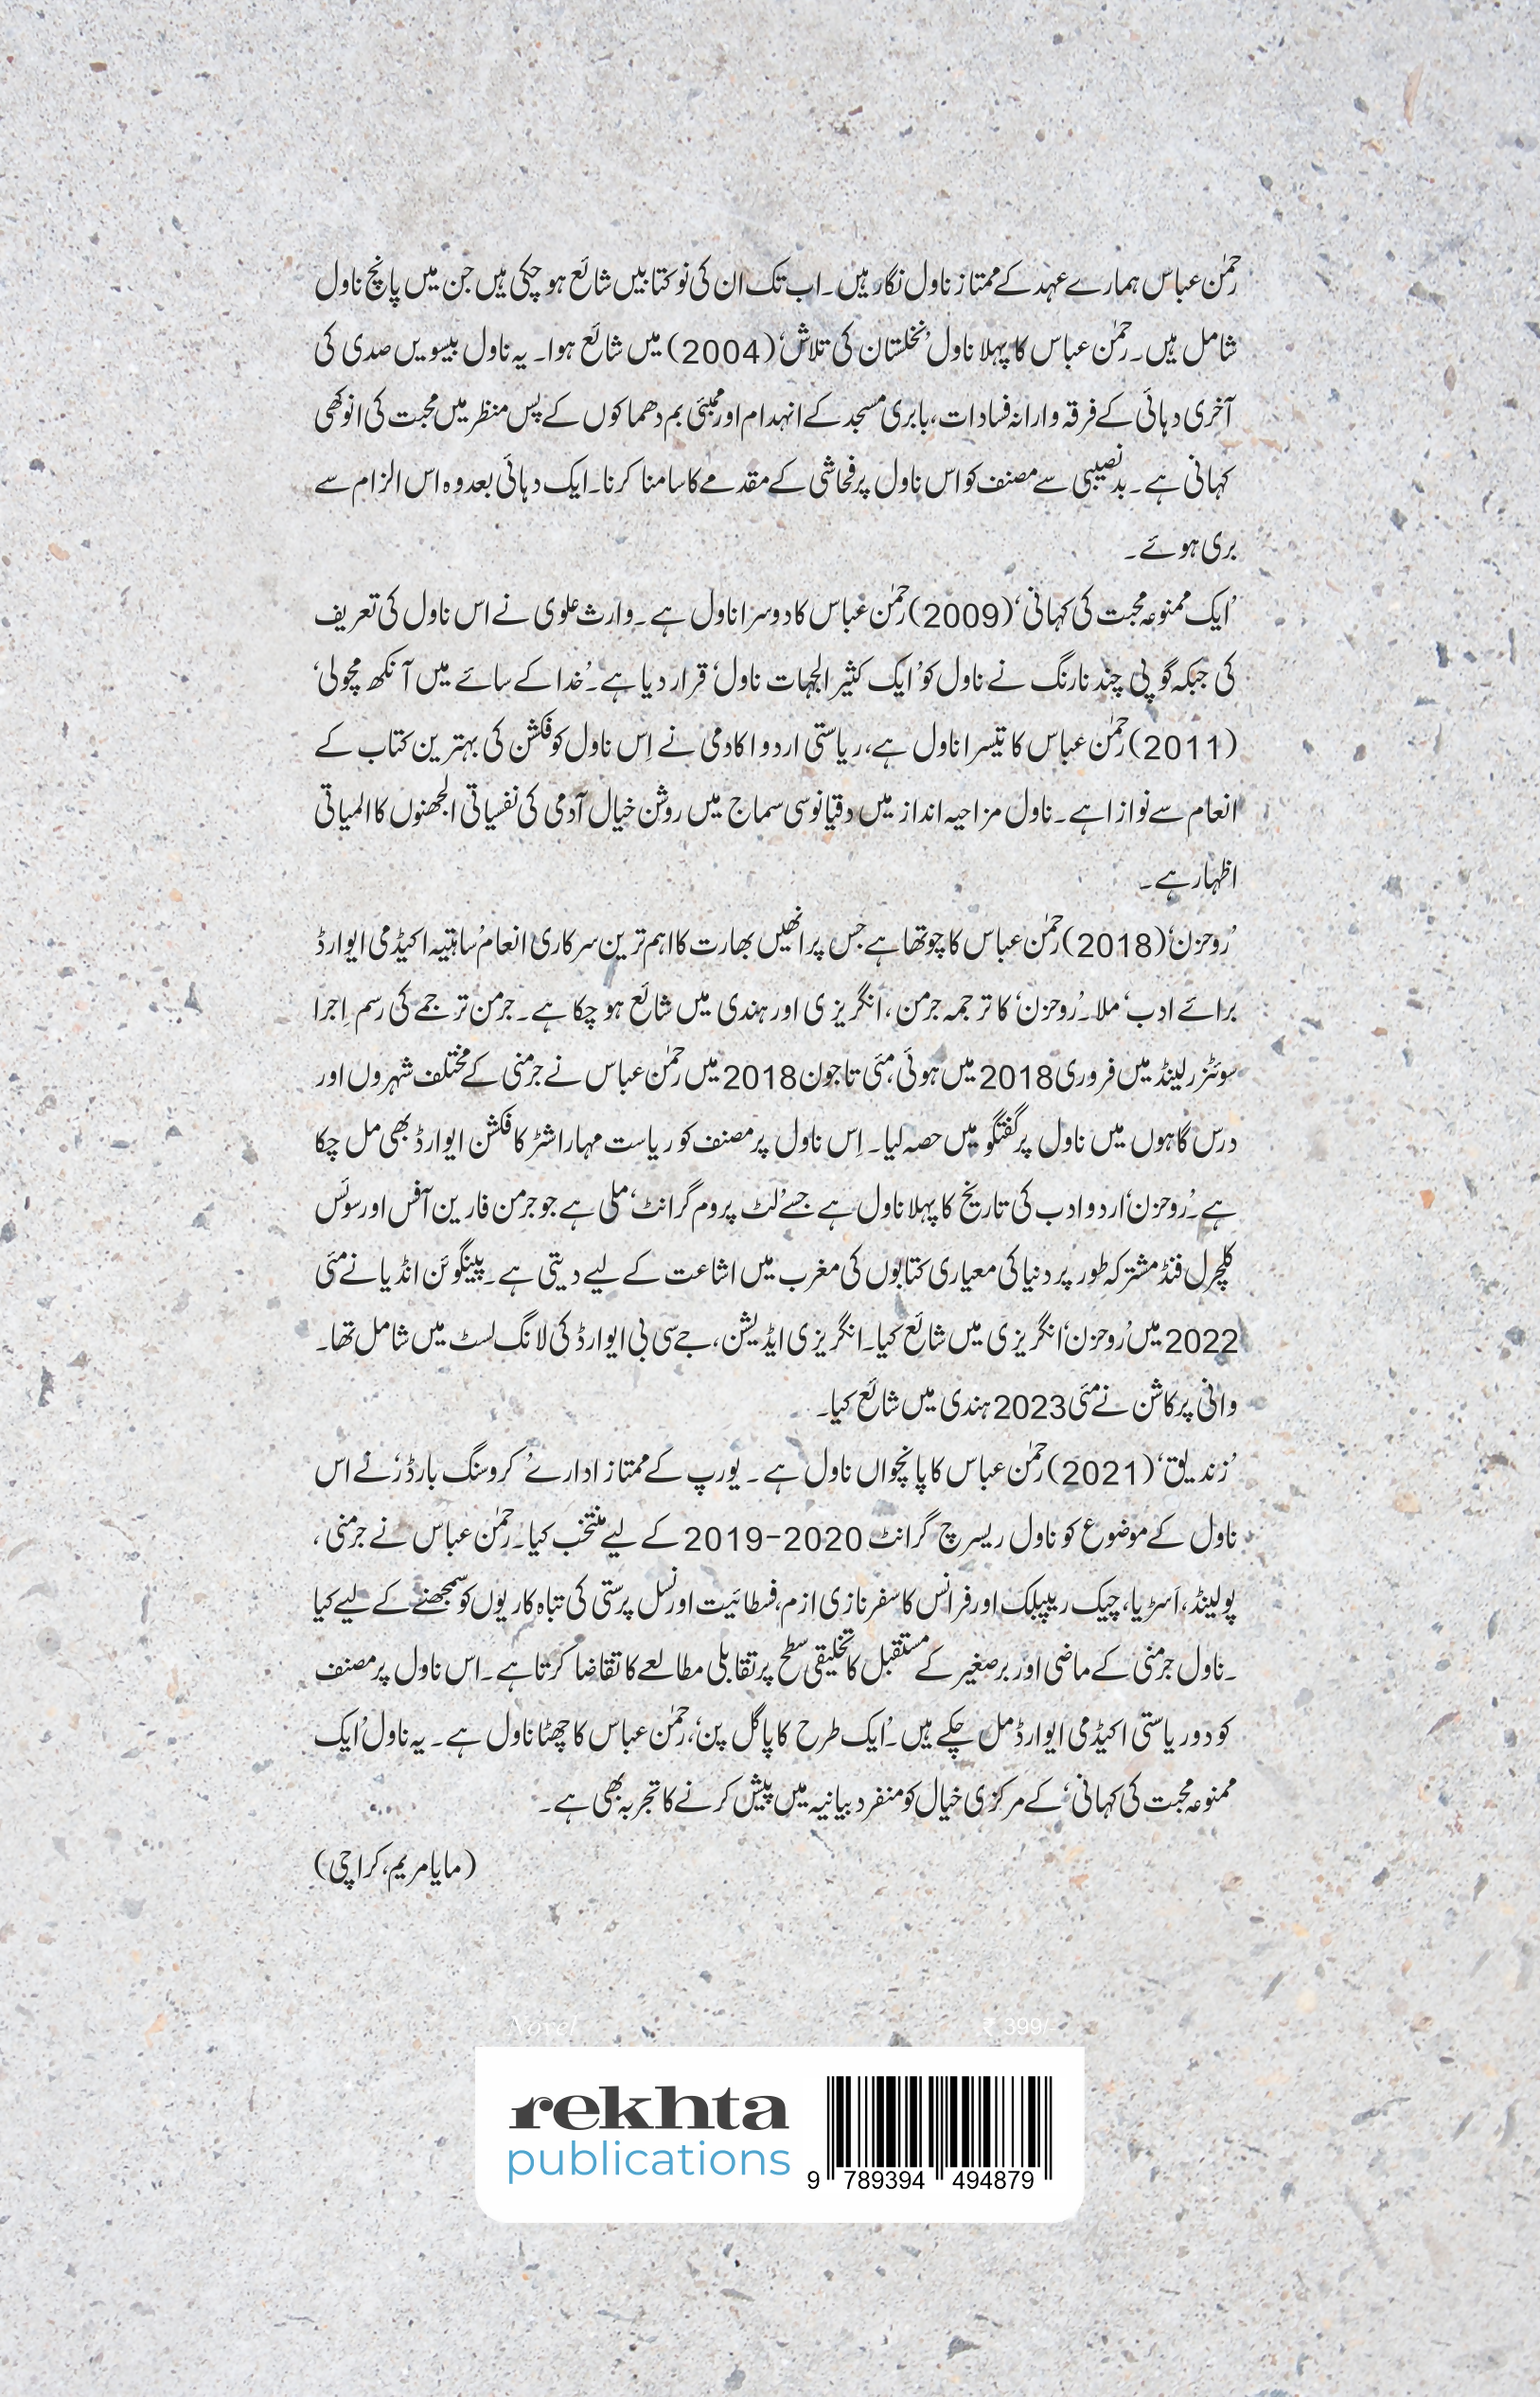 رحمٰن عباس ہمارے عہد کے ممتاز ناول نگار ہیں۔ اب تک ان کی نو کتابیں شائع ہو چکی ہیں جن میں پانچ ناول
شامل ہیں۔ رحمٰن عباس کا پہلا ناول ’نخلستان کی تلاش‘ (2004) میں شائع ہوا۔ یہ ناول بیسویں صدی کی
آخری دہائی کے فرقہ وارانہ فسادات، بابری مسجد کے انہدام اور ممبئی بم دھماکوں کے پس منظر میں محبت کی انوکھی
کہانی ہے۔ بدنصیبی سے مصنف کو اس ناول پر فحاشی کے مقدمے کا سامنا کرنا۔ ایک دہائی بعد وہ اس الزام سے
بری ہوئے۔
’ایک ممنوعہ محبت کی کہانی‘ (2009) رحمٰن عباس کا دوسرا ناول ہے۔ وارث علوی نے اس ناول کی تعریف
کی جبکہ گوپی چند نارنگ نے ناول کو ’ایک کثیر الجہات ناول‘ قرار دیا ہے۔ ’خدا کے سائے میں آنکھ مچولی‘
(2011) رحمٰن عباس کا تیسرا ناول ہے، ریاستی اردو اکادمی نے اِس ناول کو فکشن کی بہترین کتاب کے
انعام سے نوازا ہے۔ ناول مزاحیہ انداز میں دقیانوسی سماج میں روشن خیال آدمی کی نفسیاتی الجھنوں کا المیاتی
اظہار ہے۔
’روحزن‘ (2018) رحمٰن عباس کا چوتھا ہے جس پر انھیں بھارت کا اہم ترین سرکاری انعام ’ساہتیہ اکیڈمی ایوارڈ
برائے ادب‘ ملا۔ ’روحزن‘ کا ترجمہ جرمن، انگریزی اور ہندی میں شائع ہو چکا ہے۔ جرمن ترجمے کی رسم اِجرا
سوئٹزرلینڈ میں فروری 2018 میں ہوئی، مئی تا جون 2018 میں رحمٰن عباس نے جرمنی کے مختلف شہروں اور
درس گاہوں میں ناول پر گفتگو میں حصہ لیا۔ اِس ناول پر مصنف کو ریاست مہاراشٹر کا فکشن ایوارڈ بھی مل چکا
ہے۔ ’روحزن‘ اردو ادب کی تاریخ کا پہلا ناول ہے جسے ’لٹ پروم گرانٹ‘ ملی ہے جو جرمن فارین آفس اور سوئس
کلچرل فنڈ مشترکہ طور پر دنیا کی معیاری کتابوں کی مغرب میں اشاعت کے لیے دیتی ہے۔ پینگوئن انڈیا نے مئی
2022 میں ’روحزن‘ انگریزی میں شائع کیا۔ انگریزی ایڈیشن، جے سی بی ایوارڈ کی لانگ لسٹ میں شامل تھا۔
وانی پرکاشن نے مئی 2023 ہندی میں شائع کیا۔
’زندیق‘ (2021) رحمٰن عباس کا پانچواں ناول ہے۔ یورپ کے ممتاز ادارے ’کروسنگ بارڈر‘ نے اس
ناول کے موضوع کو ناول ریسرچ گرانٹ 2020-2019 کے لیے منتخب کیا۔ رحمٰن عباس نے جرمنی،
پولینڈ، آسٹریا، چیک ریپبلک اور فرانس کا سفر نازی ازم، فسطائیت اور نسل پرستی کی تباہ کاریوں کو سمجھنے کے لیے کیا
۔ ناول جرمنی کے ماضی اور برصغیر کے مستقبل کا تخلیقی سطح پر تقابلی مطالعے کا تقاضا کرتا ہے۔ اس ناول پر مصنف
کو دو ریاستی اکیڈمی ایوارڈ مل چکے ہیں۔ ’ایک طرح کا پاگل پن‘، رحمٰن عباس کا چھٹا ناول ہے۔ یہ ناول ’ایک
ممنوعہ محبت کی کہانی‘ کے مرکزی خیال کو منفرد بیانیہ میں پیش کرنے کا تجربہ بھی ہے۔
(مایا مریم، کراچی)
Novel ₹ 399/-
rekhta
publications
9 789394 494879